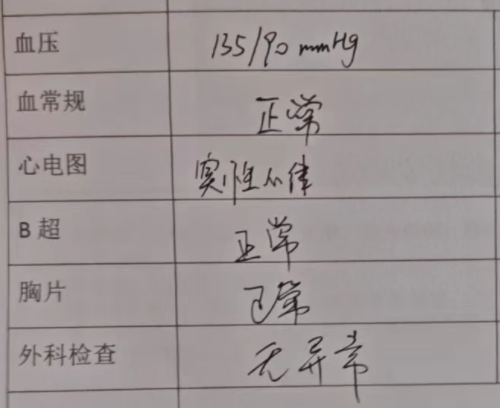 血压 135/90 mmHg
血常规 正常
心电图 窦性心律
B 超 正常
胸片 正常
外科检查 无异常